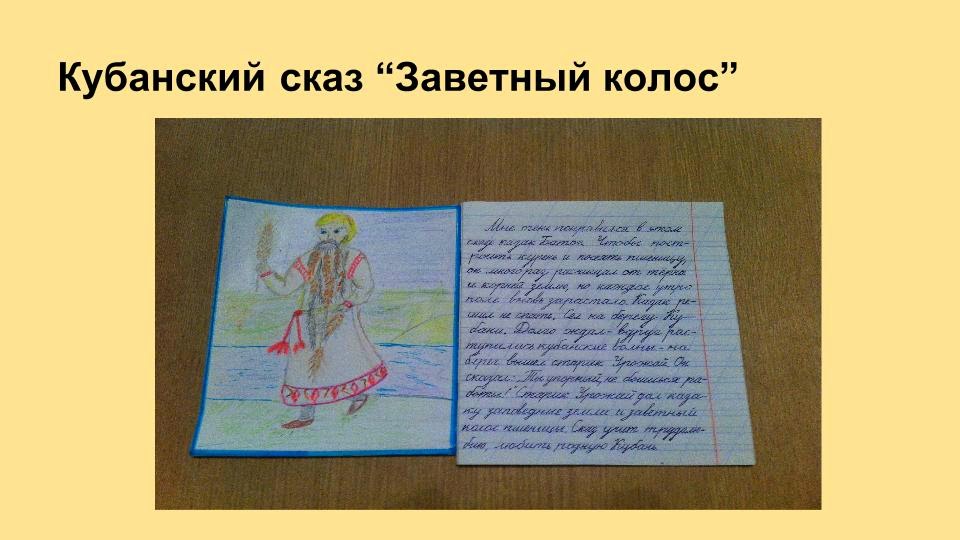 Кубанский сказ “Заветный колос”
Мне очень понравился в этом
сказе казак Батог. Чтобы пост-
роить курень и посеять пшеницу,
он много раз расчищал от тёрна
и корней землю, но каждое утро
поле вновь зарастало. Казак ре-
шил не спать. Сел на берегу Ку-
бани. Долго ждал - вдруг рас-
тупились кубанские волны - на
берег вышел старик Урожай. Он
сказал: "Ты упорный, не боишься ра-
боты!" Старик Урожай дал каза-
ку заповедные земли и заветный
колос пшеницы. Сказ учит трудолю-
бию, любить родную Кубань.